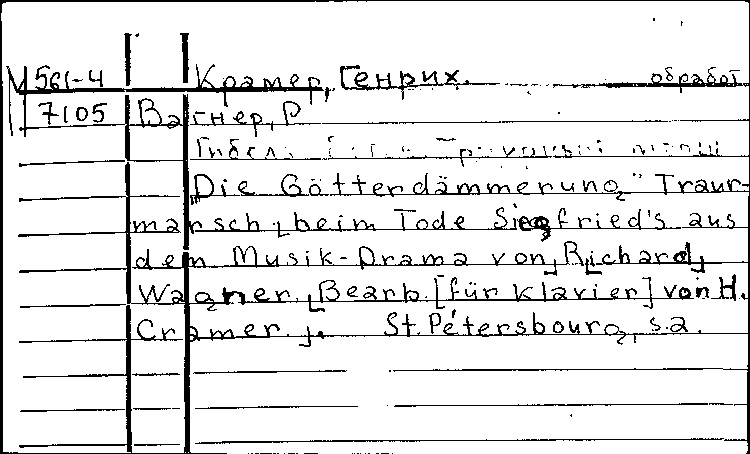 М 561-4 Крамер, Генрих. обработ
7105 Вагнер, Р
Гибель
„Die Götterdämmerung" Traur-
marsch beim Tode Siegfried's aus
dem Musik-Drama von Richard
Wagner. [Bearb. [für Klavier] von H.
Cramer.]. St. Pétersbourg, s.a.